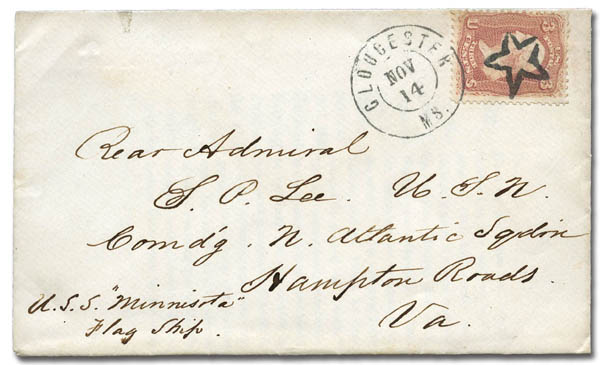 GLOUCESTER MS.
NOV
14
U 3
3 S
Rear Admiral
S. P. Lee. U.S.N.
Comd'g. N. Atlantic Sqdrn
Hampton Roads.
Va.
U.S.S. "Minnisota"
Flag Ship.